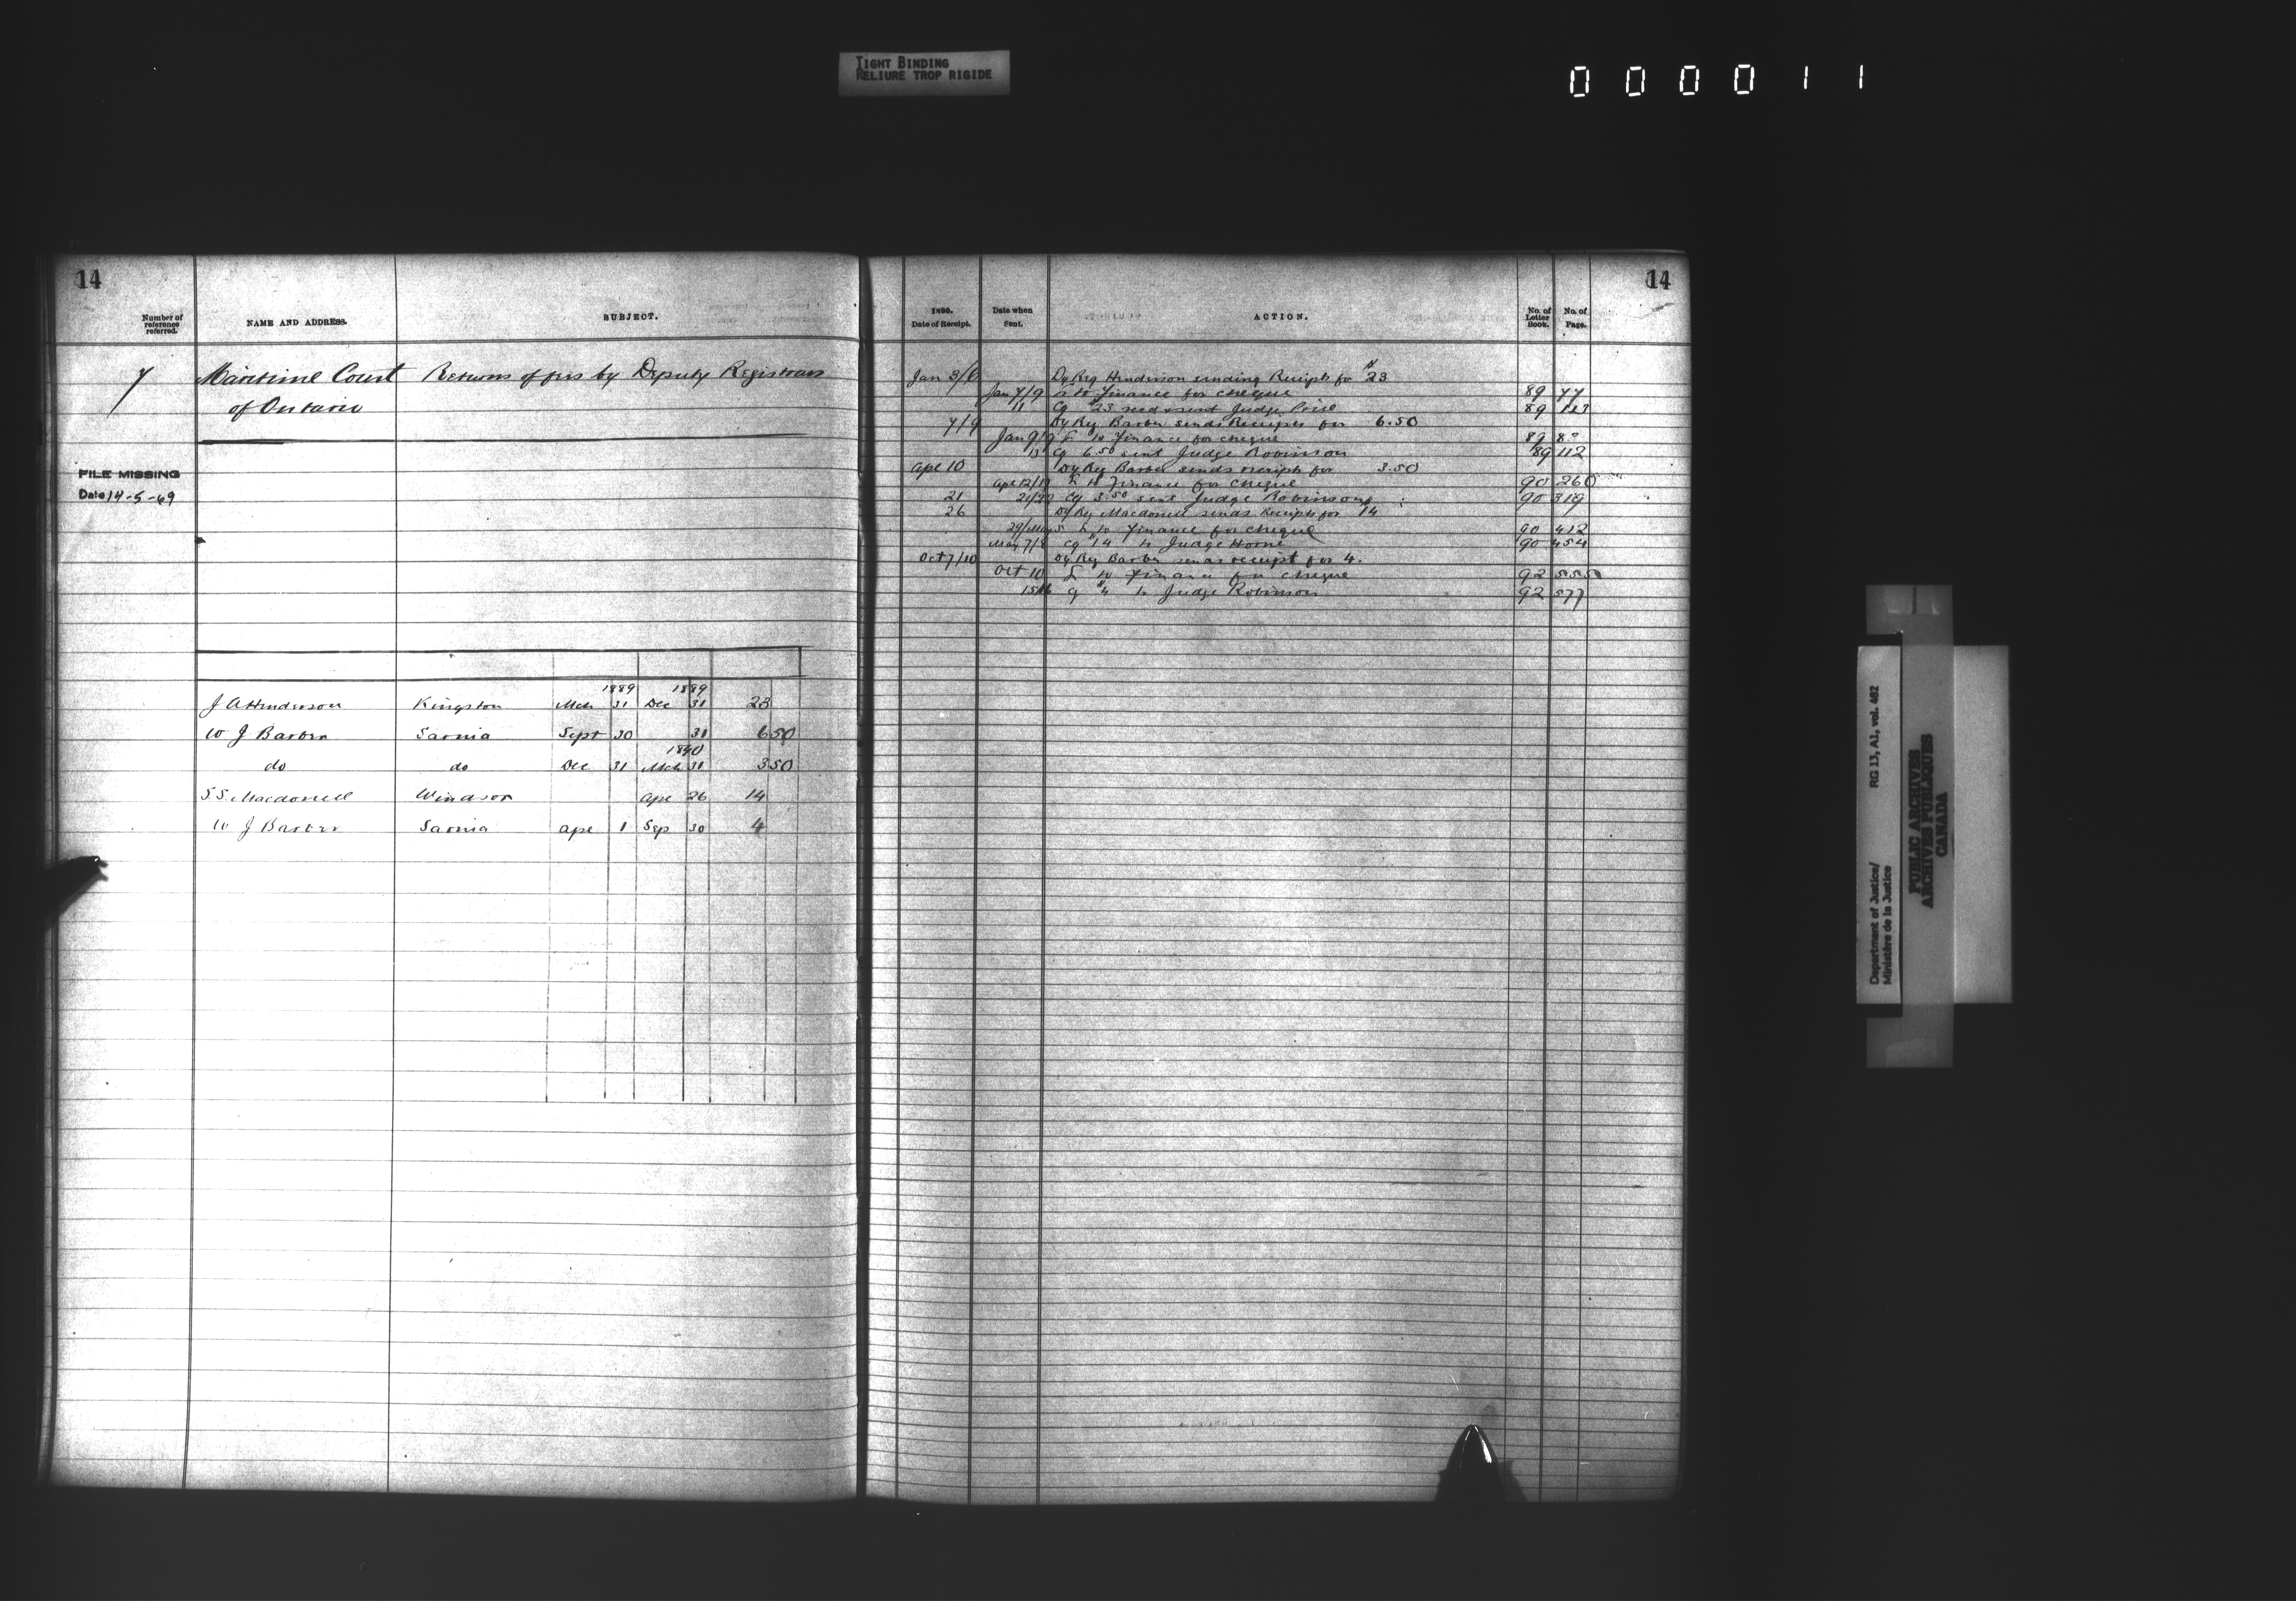 TIGHT BINDING
RELIURE TROP RIGIDE
000011
14
Number of reference referred.
NAME AND ADDRESS.
SUBJECT.
7
Maritime Court Returns of fees by Deputy Registrars
of Ontario
FILE MISSING
Date 14-5-69
1889 1889
J A Henderson Kingston Mch 31 Dec 31 23
W J Barber Sarnia Sept 30 31 6 50
1890
do do Dec 31 Mch 31 3 50
S S Macdonell Windsor Ape 26 14
W J Barber Sarnia Ape 1 Sep 30 4
14
1890.
Date of Receipt.
Date when Sent.
ACTION.
No. of Letter Book.
No. of Page.
Jan 3/6 Dy Reg Henderson sending Receipts for $23
Jan 7/9 to Finance for cheque 89 77
11 Cq $23 recd & sent Judge Price 89 113
7/9 Dy Reg Barber sends Receipts for 6.50
Jan 9/9 L to Finance for cheque 89
13 Cq 6.50 sent Judge Robinson 89 112
Ape 10 Dy Reg Barber sends receipts for 3.50
Ape 12/17 L to Finance for cheque 90 260
21 21/22 Cq 3.50 sent Judge Robinson 90 319
26 Dy Reg Macdonell sends Receipts for $14
29/May 5 L to Finance for cheque 90 412
May 7/8 Cq $14 to Judge Horne 90 454
Oct 7/10 Dy Reg Barber sends receipt for 4.
Oct 10 L to Finance for cheque 92 555
15/16 Cq $4 to Judge Robinson 92 577
Department of Justice/ RG 13, A1, vol. 482
Ministère de la Justice
PUBLIC ARCHIVES
ARCHIVES PUBLIQUES
CANADA